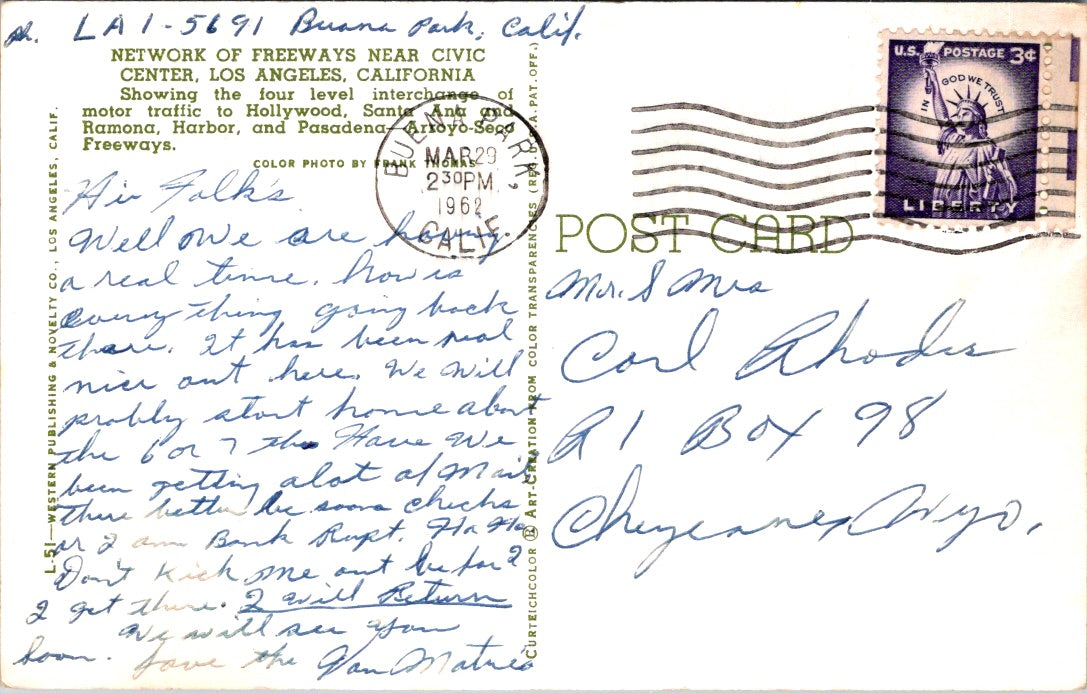 Ph. LA 1-5691 Buana Park, Calif.
NETWORK OF FREEWAYS NEAR CIVIC
CENTER, LOS ANGELES, CALIFORNIA
Showing the four level interchange of
motor traffic to Hollywood, Santa Ana and
Ramona, Harbor, and Pasadena—Arroyo-Seco
Freeways.
COLOR PHOTO BY FRANK THOMAS
Hi Folk's
Well we are having
a real time. how is
every thing going back
there. It has been real
nice out here. We Will
probly start home about
the 6 or 7 the Have We
been getting alot of Mail
there better be some checks
or I am Bank Rupt. Ha Ha
Don't Kick me out be for
I get there. I will Return
We will see you
Soon. Love the Van Matres
L-51—WESTERN PUBLISHING & NOVELTY CO., LOS ANGELES, CALIF.
CURTEICHCOLOR ® ART-CREATION FROM COLOR TRANSPARENCIES (REG. U.S.A. PAT. OFF.)
BUENA PARK,
MAR 29
2 30 PM
1962
CALIF.
U.S. POSTAGE 3¢
IN GOD WE TRUST
LIBERTY
POST CARD
Mr. & Mrs
Carl Rhodes
R 1 Box 98
Cheyenne, Wyo.